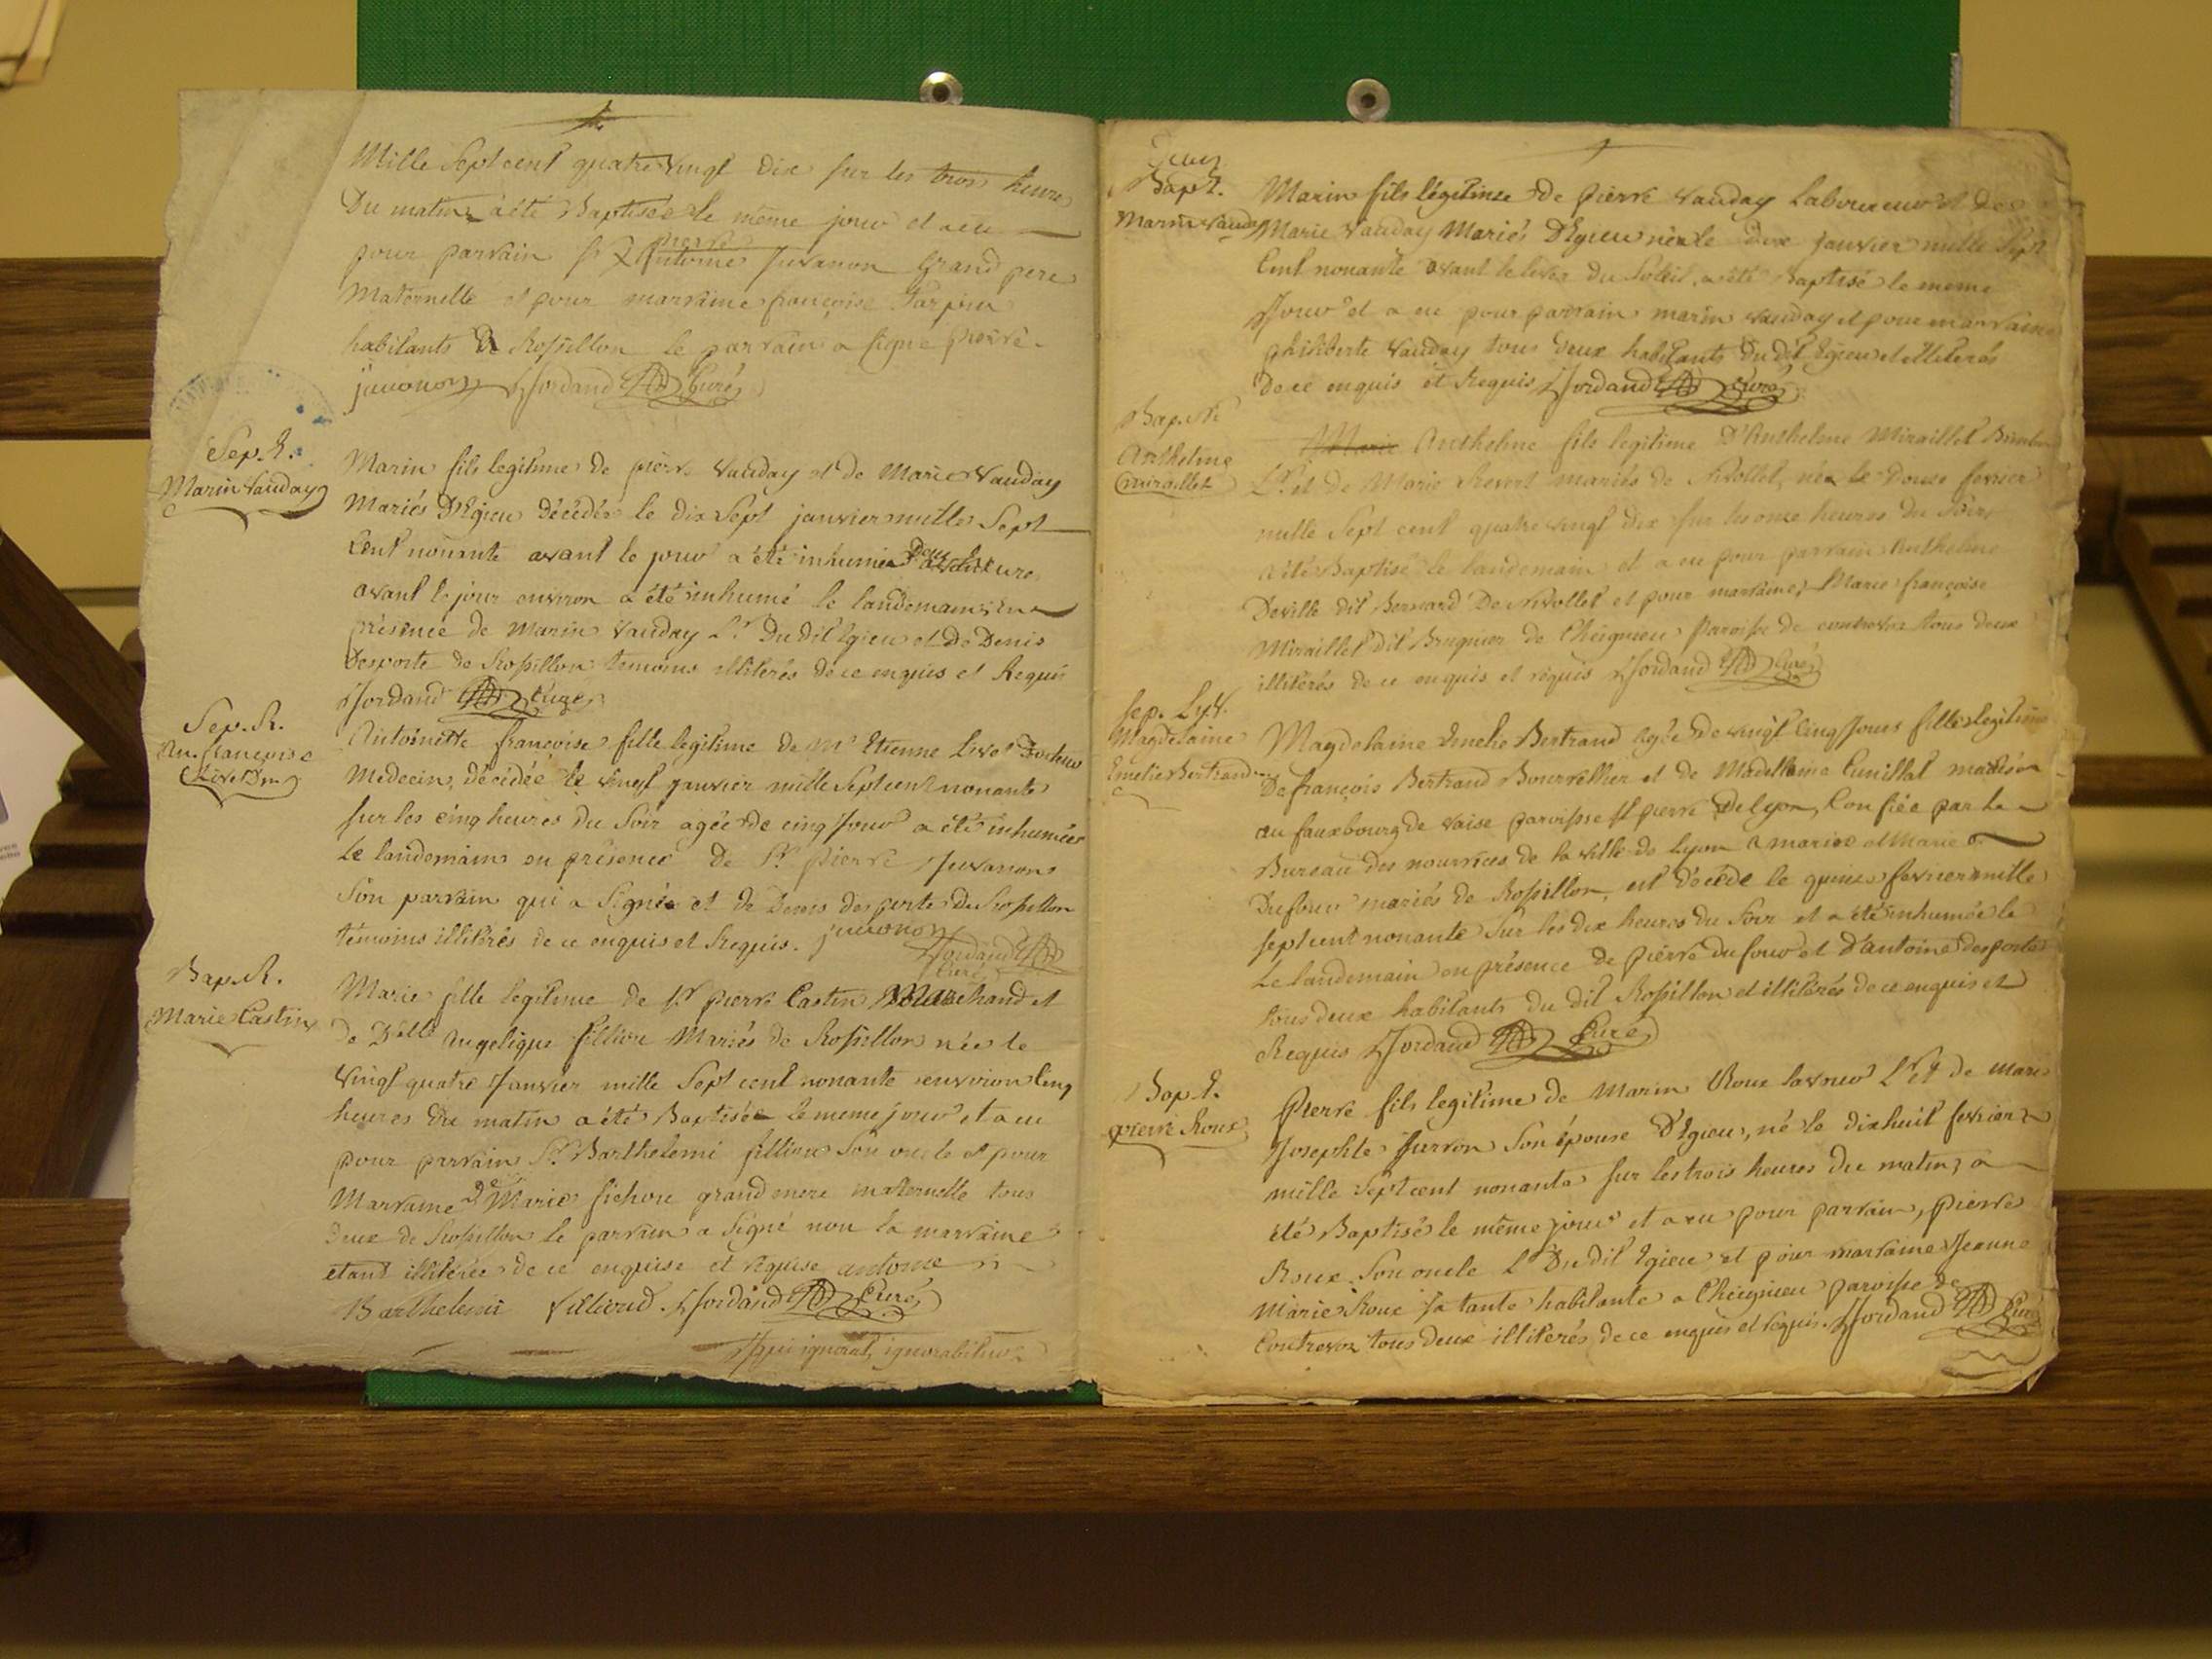 Mille Sept cent quatre vingt dix sur les trois heures
Du matin a été Baptisée le même jour et a eu
pierre
pour parrain Sr Antoine Juvanon Grand pere
Maternelle et pour marraine françoise
habitants de Rossillon le parrain a signé pierre
juuonon Jordand Curé
Sep. R.
Marin Vauday
Marin fils legitime de pierre Vauday et de Marie Vauday
Mariés D'Egieu décédé le dix Sept janvier mille Sept
Cent nonante avant le jour a été inhumé
avant le jour environ a été inhumé le landemain en
présence de Marin Vauday Lr Du dit Egieu et De Denis
Desporte de Rossillon temoins illiterés de ce enquis et Requis
Jordand Curé
Sep. R.
An. françoise
Livet Dm
Antoinette françoise fille legitime de Mr Etienne Livet Docteur
Medecin, décédée le vingt janvier mille Sept cent nonante
sur les cinq heures du Soir agée de cinq Jour a été inhumée
Le landemain en présence de Sr pierre Juvanon
Son parrain qui a Signé et de Denis desporte De Rossillon
témoins illiterés de ce enquis et Requis. juuonon
Jordand
Curé
Bap. R.
Marie Castin
Marie fille legitime de Sr pierre Castin Marchand et
de Delle Angelique filliou Mariés de Rossillon née le
Vingt quatre Janvier mille Sept cent nonante environ cinq
heures du matin a été Baptisée le meme jour et a eu
pour parrain Sr Barthelemi filliou Son oncle et pour
Marraine De Marie fichou grand mere maternelle tous
Deux de Rossillon le parrain a Signé non la marraine
etant illiterée de ce enquise et réquise antoine
Barthelemi fillioud. Jordand Curé
qui ignorat, ignorabitur
Bapt.
Marin Vauday
Marin fils légitime de pierre Vauday Laboureur et De
Marie Vauday Mariés D'Egieu né le Dix Janvier mille Sept
Cent nonante avant le lever du Soleil, a été Baptisé le meme
Jour et a eu pour parrain marin Vauday et pour marraine
philiberte Vauday tous deux habitants Du dit Egieu et illiterés
De ce enquis et Requis Jordand Curé
Bap. N
Anthelme
Miraillet
Marie Anthelme fils legitime D'Anthelme Miraillet
Lr et de Marie Revert mariés de Nivollet, né le Douze fevrier
mille Sept cent quatre vingt dix sur les onze heures du Soir
a été Baptisé le landemain et a eu pour parrain Anthelme
Deville dit Bernard De Nivollet et pour marraine Marie françoise
Miraillet dit Brugnier de Cheignieu Paroisse de contrevoz tous deux
illitérés de ce enquis et réquis Jordand Curé
Sep. Ly.
Magdelaine
Emelie Bertrand
Magdelaine Emelie Bertrand agée de vingt Cinq Jours fille legitime
De françois Bertrand Bourrellier et de Madelaine Cunillat
au fauxbourg de vaise paroisse St pierre De lyon, Confiée par le
Bureau des nourrices de la ville de Lyon a et Marie
Dufour mariés de Rossillon, est décédé le quinze fevrier mille
sept cent nonante Sur les dix heures du Soir et a été inhumée le
Le landemain en présence de pierre du four et D'antoine Desporte
tous deux habitants du dit Rossillon et illitérés de ce enquis et
Requis Jordand Curé
Bap. R.
pierre Roux
Pierre fils legitime de Marin Roux Lr et de Marie
Josephte Jurron Son épouse D'Egieu, né le dixhuit fevrier
mille sept cent nonante sur les trois heures du matin, a
été Baptisé le même jour et a eu pour parrain, pierre
Roux Son oncle Lr Du dit Egieu et pour marraine Jeanne
Marie Roux sa tante habitante a Cheignieu paroisse de
Contrevoz tous deux illiterés de ce enquis et requis. Jordand Curé